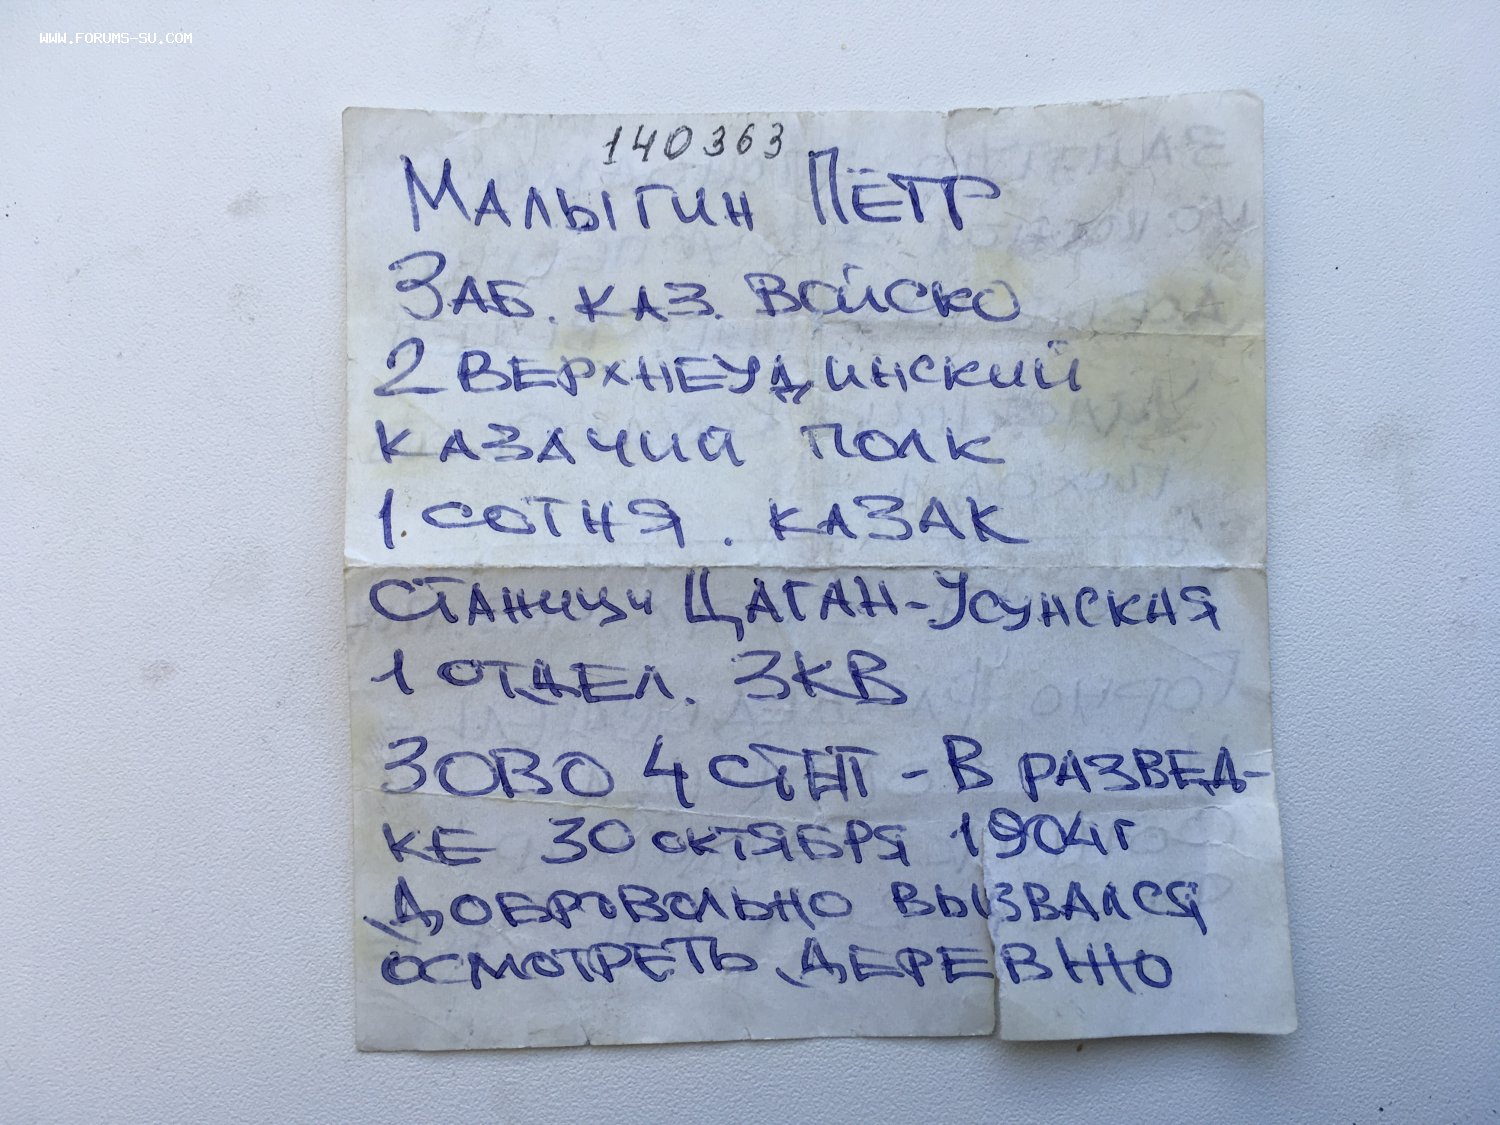 WWW.FORUMS-SU.COM
140363
Малыгин Пётр
Заб. каз. войско
2 Верхнеудинский
казачий полк
1. сотня. казак
станици Цаган-Усунская
1 отдел. ЗКВ
ЗОВО 4 СТЕП - В развед-
ке 30 октября 1904г
добровольно вызвался
осмотреть деревню